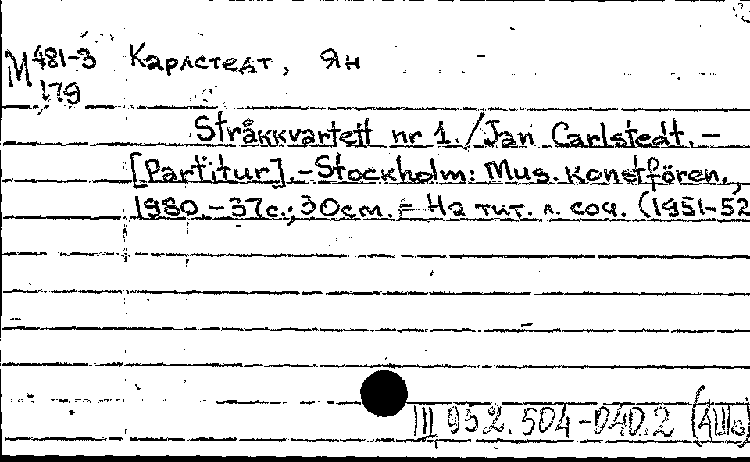 М 481-3 Карлстедт, Ян
179
Stråkkvartett nr 1. / Jan Carlstedt. –
[Partitur]. – Stockholm: Mus. Konstfören.,
1980. – 37с.; 30см. = На тит. л. соч. (1951-52
III 952. 504-040.2